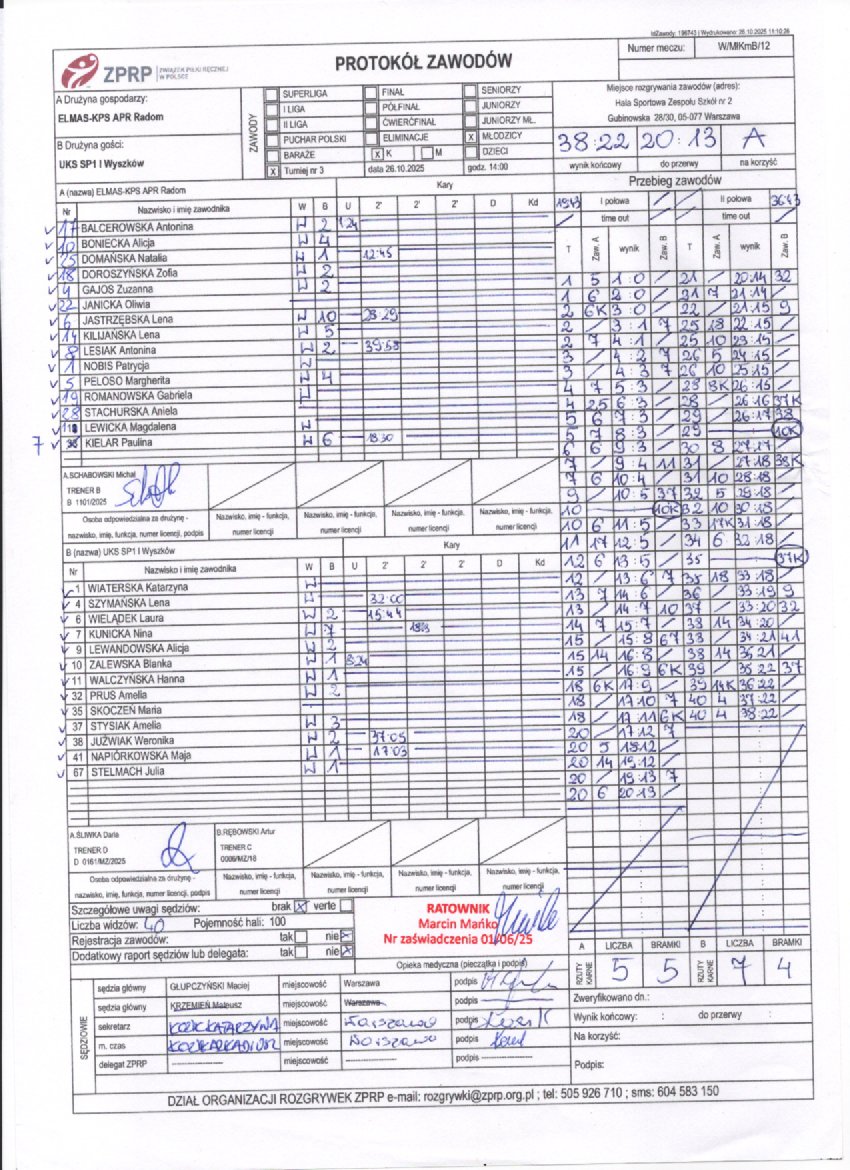 IdZawody: 196743 | Wydrukowano: 26.10.2025 11:10:26
ZPRP ZWIĄZEK PIŁKI RĘCZNEJ W POLSCE
PROTOKÓŁ ZAWODÓW
Numer meczu: W/MłKmB/12
A Drużyna gospodarzy:
ELMAS-KPS APR Radom
B Drużyna gości:
UKS SP1 I Wyszków
ZAWODY
SUPERLIGA FINAŁ SENIORZY
I LIGA PÓŁFINAŁ JUNIORZY
II LIGA ĆWIERĆFINAŁ JUNIORZY MŁ.
PUCHAR POLSKI ELIMINACJE X MŁODZICY
BARAŻE X K M DZIECI
X Turniej nr 3 data 26.10.2025 godz. 14:00
Miejsce rozgrywania zawodów (adres):
Hala Sportowa Zespołu Szkół nr 2
Gubinowska 28/30, 05-077 Warszawa
38:22 20:13 A
wynik końcowy do przerwy na korzyść
Przebieg zawodów
19:43 I połowa II połowa 36:43
time out time out
T Zaw. A wynik Zaw. B T Zaw. A wynik Zaw. B
1 5 1:0 / 21 / 20:14 32
1 6 2:0 / 21 7 21:14 /
2 6K 3:0 / 22 / 21:15 9
2 / 3:1 7 25 18 22:15 /
2 7 4:1 / 25 10 23:15 /
3 / 4:2 7 26 5 24:15 /
3 / 4:3 7 26 10 25:15 /
4 7 5:3 / 28 8K 26:15 /
4 25 6:3 / 28 / 26:16 37K
5 6 7:3 / 29 / 26:17 38
5 7 8:3 / 29 10K
6 6 9:3 / 30 8 27:17 /
7 / 9:4 11 31 / 27:18 38K
7 6 10:4 / 31 10 28:18 /
9 / 10:5 37 32 5 29:18 /
10 10K 32 10 30:18 /
10 6 11:5 / 33 17K 31:18 /
11 17 12:5 / 34 6 32:18 /
12 6 13:5 / 35 37K
12 / 13:6 7 35 18 33:18 /
13 7 14:6 / 36 / 33:19 9
13 / 14:7 10 37 / 33:20 32
14 7 15:7 / 38 14 34:20 /
15 / 15:8 67 38 / 34:21 41
15 14 16:8 / 38 14 35:21 /
15 / 16:9 6K 39 / 35:22 37
18 6K 17:9 / 39 14K 36:22 /
18 / 17:10 7 40 4 37:22 /
18 / 17:11 6K 40 4 38:22 /
20 / 17:12 7
20 5 18:12 /
20 14 19:12 /
20 / 19:13 7
20 6 20:13 /
A (nazwa) ELMAS-KPS APR Radom Kary
Nr Nazwisko i imię zawodnika W B U 2' 2' 2' D D Kd
17 BALCEROWSKA Antonina W 2 1:24
10 BONIECKA Alicja W 4
25 DOMAŃSKA Natalia W 1 12:45
18 DOROSZYŃSKA Zofia W 2
4 GAJOS Zuzanna W 2
22 JANICKA Oliwia
6 JASTRZĘBSKA Lena W 10 28:29
14 KILIJAŃSKA Lena W 5
8 LESIAK Antonina W 2 39:58
1 NOBIS Patrycja W
5 PELOSO Margherita W 4
19 ROMANOWSKA Gabriela W
28 STACHURSKA Aniela
LEWICKA Magdalena W
7 KIELAR Paulina W 6 18:30
A.SCHABOWSKI Michał
TRENER B
B 1101/2025
Osoba odpowiedzialna za drużynę - nazwisko, imię, funkcja, numer licencji, podpis
Nazwisko, imię - funkcja, numer licencji
Nazwisko, imię - funkcja, numer licencji
Nazwisko, imię - funkcja, numer licencji
Nazwisko, imię - funkcja, numer licencji
B (nazwa) UKS SP1 I Wyszków Kary
Nr Nazwisko i imię zawodnika W B U 2' 2' 2' D D Kd
1 WIATERSKA Katarzyna W
4 SZYMAŃSKA Lena W 32:00
6 WIELĄDEK Laura W 2 15:44
7 KUNICKA Nina W 7
9 LEWANDOWSKA Alicja W 2
10 ZALEWSKA Blanka W 1 8:24
11 WALCZYŃSKA Hanna W 1
32 PRUS Amelia W 2
35 SKOCZEŃ Maria
37 STYSIAK Amelia W 3
38 JUŹWIAK Weronika W 2 37:05
41 NAPIÓRKOWSKA Maja W 1 17:03
67 STELMACH Julia W 1
A.ŚLIWKA Daria
TRENER D
D 0161/MZ/2025
B.RĘBOWSKI Artur
TRENER C
0006/MZ/18
Osoba odpowiedzialna za drużynę - nazwisko, imię, funkcja, numer licencji, podpis
Nazwisko, imię - funkcja, numer licencji
Nazwisko, imię - funkcja, numer licencji
Nazwisko, imię - funkcja, numer licencji
Nazwisko, imię - funkcja, numer licencji
Szczegółowe uwagi sędziów: brak X verte
Liczba widzów: 40 Pojemność hali: 100
Rejestracja zawodów: tak nie X
Dodatkowy raport sędziów lub delegata: tak nie X
RATOWNIK
Marcin Mańko
Nr zaświadczenia 01/06/25
Opieka medyczna (pieczątka i podpis)
A RZUTY KARNE LICZBA 5 BRAMKI 5 B RZUTY KARNE LICZBA 7 BRAMKI 4
SĘDZIOWIE
sędzia główny GŁUPCZYŃSKI Maciej miejscowość Warszawa podpis
sędzia główny KRZEMIEŃ Mateusz miejscowość Warszawa podpis
sekretarz KOZIK KATARZYNA miejscowość Warszawa podpis
m. czas KOZIK ARKADIUSZ miejscowość Warszawa podpis
delegat ZPRP miejscowość podpis
Zweryfikowano dn.:
Wynik końcowy: : do przerwy :
Na korzyść:
Podpis:
DZIAŁ ORGANIZACJI ROZGRYWEK ZPRP e-mail: rozgrywki@zprp.org.pl ; tel: 505 926 710 ; sms: 604 583 150